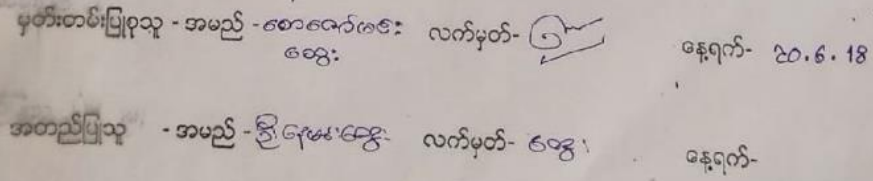 မှတ်တမ်းပြုစုသူ - အမည် - စောဇော် လက်မှတ်- နေ့ရက်- 20.6.18
ထွေး
အတည်ပြုသူ - အမည် - ဦး ထွေး လက်မှတ်- ထွေး နေ့ရက်-